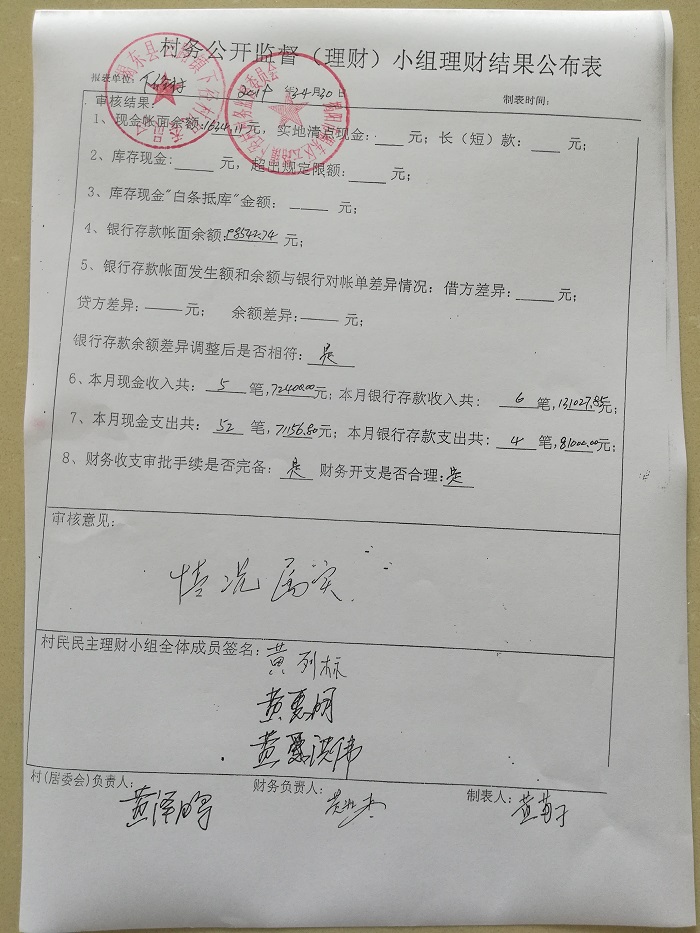 村务公开监督（理财）小组理财结果公布表
报表单位: 下 村 年 4月30日 制表时间:
审核结果:
1、现金帐面余额: 元，实地清点现金: 元；长（短）款: 元；
2、库存现金: 元，超出规定限额: 元；
3、库存现金"白条抵库"金额: 元；
4、银行存款帐面余额: 98542.74 元；
5、银行存款帐面发生额和余额与银行对帐单差异情况: 借方差异: 元；
贷方差异: 元； 余额差异: 元；
银行存款余额差异调整后是否相符: 是
6、本月现金收入共: 5 笔, 72400.00元；本月银行存款收入共: 6 笔, 131027.85元；
7、本月现金支出共: 52 笔, 71156.80元；本月银行存款支出共: 4 笔, 81000.00元；
8、财务收支审批手续是否完备: 是 财务开支是否合理: 是
审核意见:
情况属实
村民民主理财小组全体成员签名: 黄列标
黄惠明
黄 洪伟
村(居委会)负责人: 黄泽鹏 财务负责人: 制表人: 黄